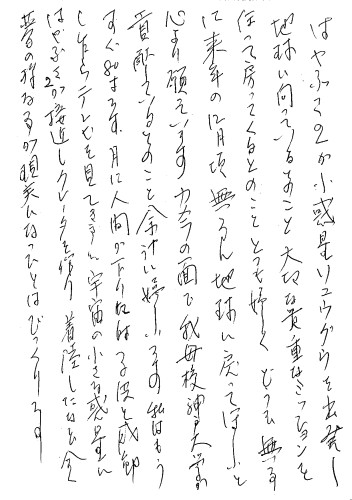 はやぶさ2が小惑星リュウグウを出発し
地球に向っているとのこと大切な貴重なミッションを
住って戻ってくるとのこととても嬉しく どうも無事
に来年の12月頃 無事 地球に戻ってほしいと
心より願っています カメラの面で我母校神戸大学が
貢献しているとのこと余計に嬉しいものです 私はもう
すぐ80才です 月に人間が下り
したらテレビを見てきました 宇宙の小さな惑星に
はやぶさ2が接近しクレータを作り 着陸したなど全く
夢の様な事が現実になったとはびっくりです